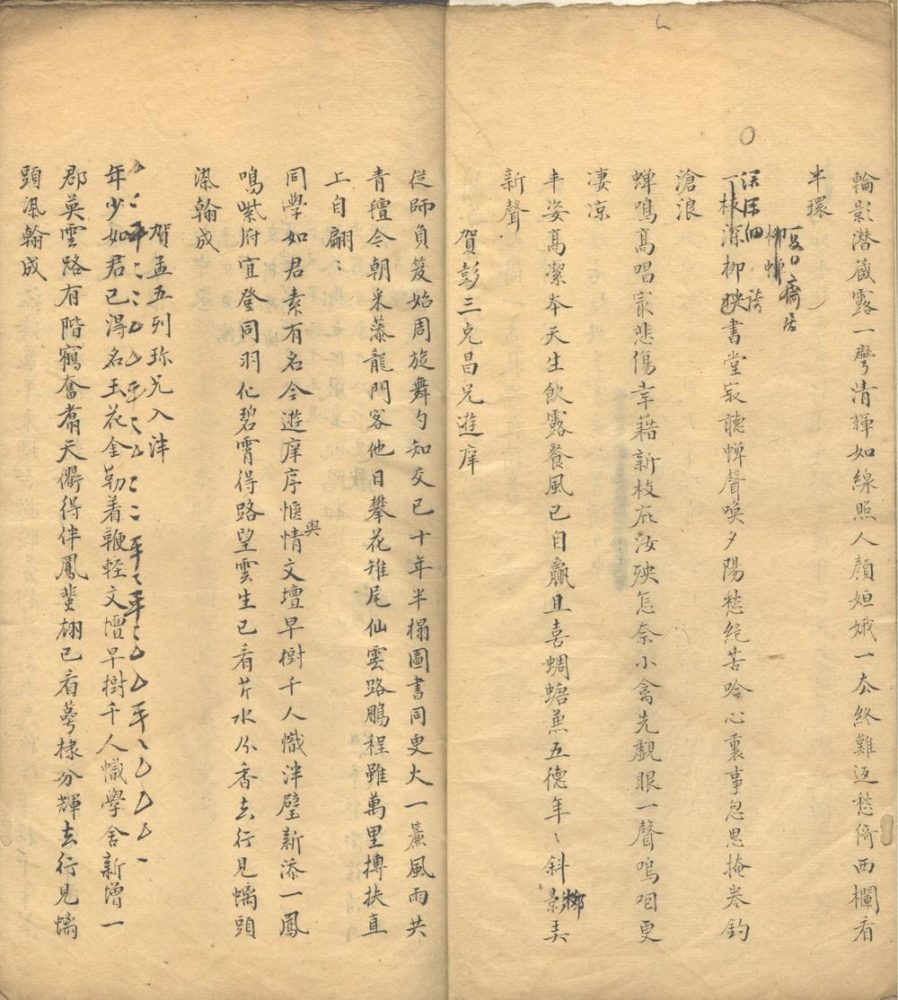 輪影潛藏露一彎清輝如線照人顏姮娥一去終難返愁倚西欄看
半環
夏日齋居
柳蟬
一枝深柳映書堂寂聽蟬聲喚夕陽愁絕苦吟心裏事忽思掩卷釣
滄浪
蟬鳴高唱最悲傷幸藉新枝庇汝殃怎奈小禽先覷眼一聲鳴咽更
淒涼
丰姿高潔本天生飲露餐風已自羸且喜蜩螗兼五德年〻斜影柳弄
新聲
賀彭三克昌兄遊庠
從師負笈始周旋舞勺知交已十年半榻圖書同更火一簾風雨共
青氊今朝采藻龍門客他日攀花雉尾仙雲路鵬程雖萬里摶扶直
上自翩〻
同學如君素有名今遊庠序愜與情文壇早樹千人幟泮壁新添一鳳
鳴紫府宜登同羽化碧霄得路望雲生已看芹水分香去行見螭頭
染翰成
賀孟五列珍兄入泮
年少如君已得名玉花金勒着鞭輕文壇早樹千人幟學舍新增一
郡英雲路有階鵷奮翥天衢得伴鳳蜚翃已看萼棣分輝去行見螭
頭染翰成